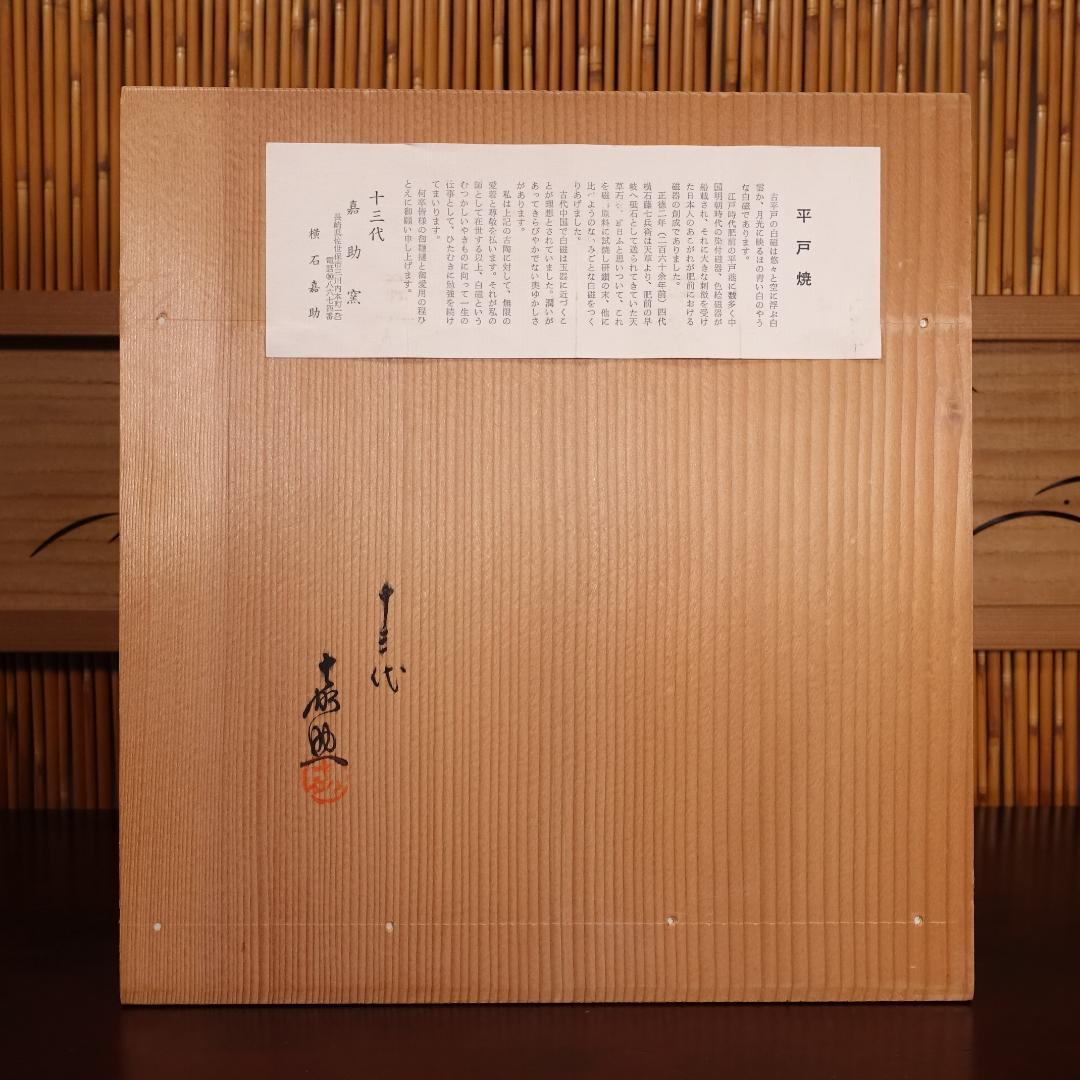 平戸焼
古平戸の白磁は悠々と空に浮ぶ白
雲か、月光に映るほの青い白のやう
な白磁であります。
江戸時代肥前の平戸港に数多く中
国明朝時代の染付磁器、色絵磁器が
船載され、それに大きな刺激を受け
た日本人のあこがれが肥前における
磁器の創成でありました。
正徳二年(二百六十余年前)四代
横石藤七兵衛は天草より、肥前の早
岐へ砥石として送られてきていた天
草石を、日ふと思いついて、これ
を磁原料に試焼し研鑽の末、他に
比べようのないみごとな白磁をつく
りあげました。
古代中国で白磁は玉器に近づくこ
とが理想とされていました。潤いが
あってきらびやかでない奥ゆかしさ
があります。
私は上記の古陶に対して、無限の
愛着と尊敬を払います。それが私の
師として在世する以上、白磁という
むつかしいやきものに向って一生の
仕事として、ひたむきに勉強を続け
てまいります。
何卒皆様の御鞭撻と御愛用の程ひ
とえに御願い申し上げます。
十三代
嘉助窯
長崎県佐世保市三川内本町
横石嘉助
十三代
嘉助